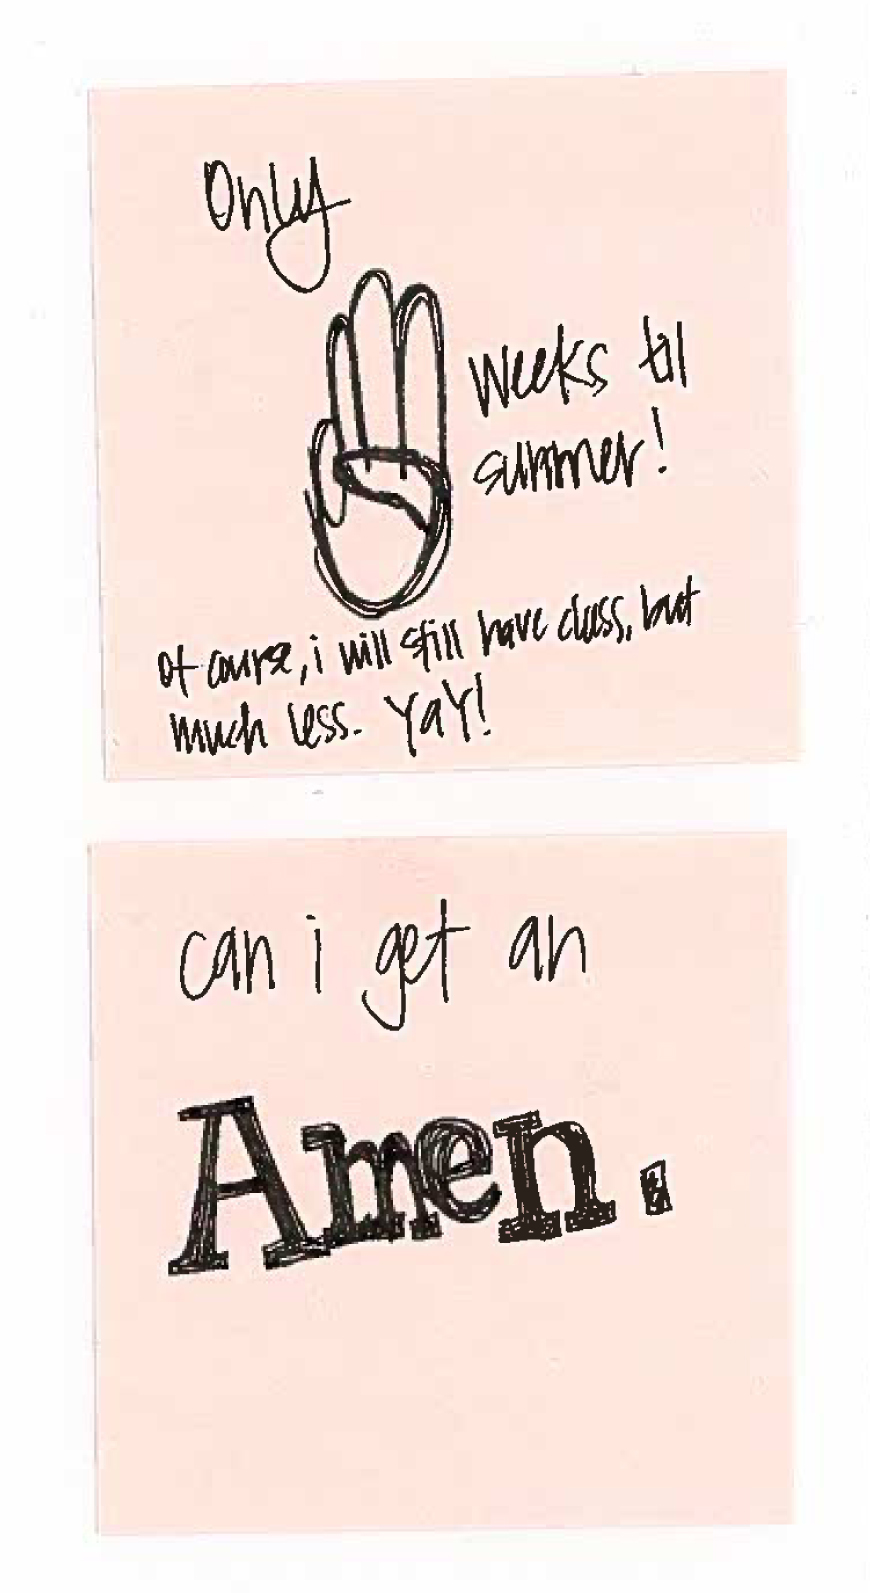 Only
Weeks til
summer!
of course, i will still have class, but
much less. YaY!
can i get an
Amen.